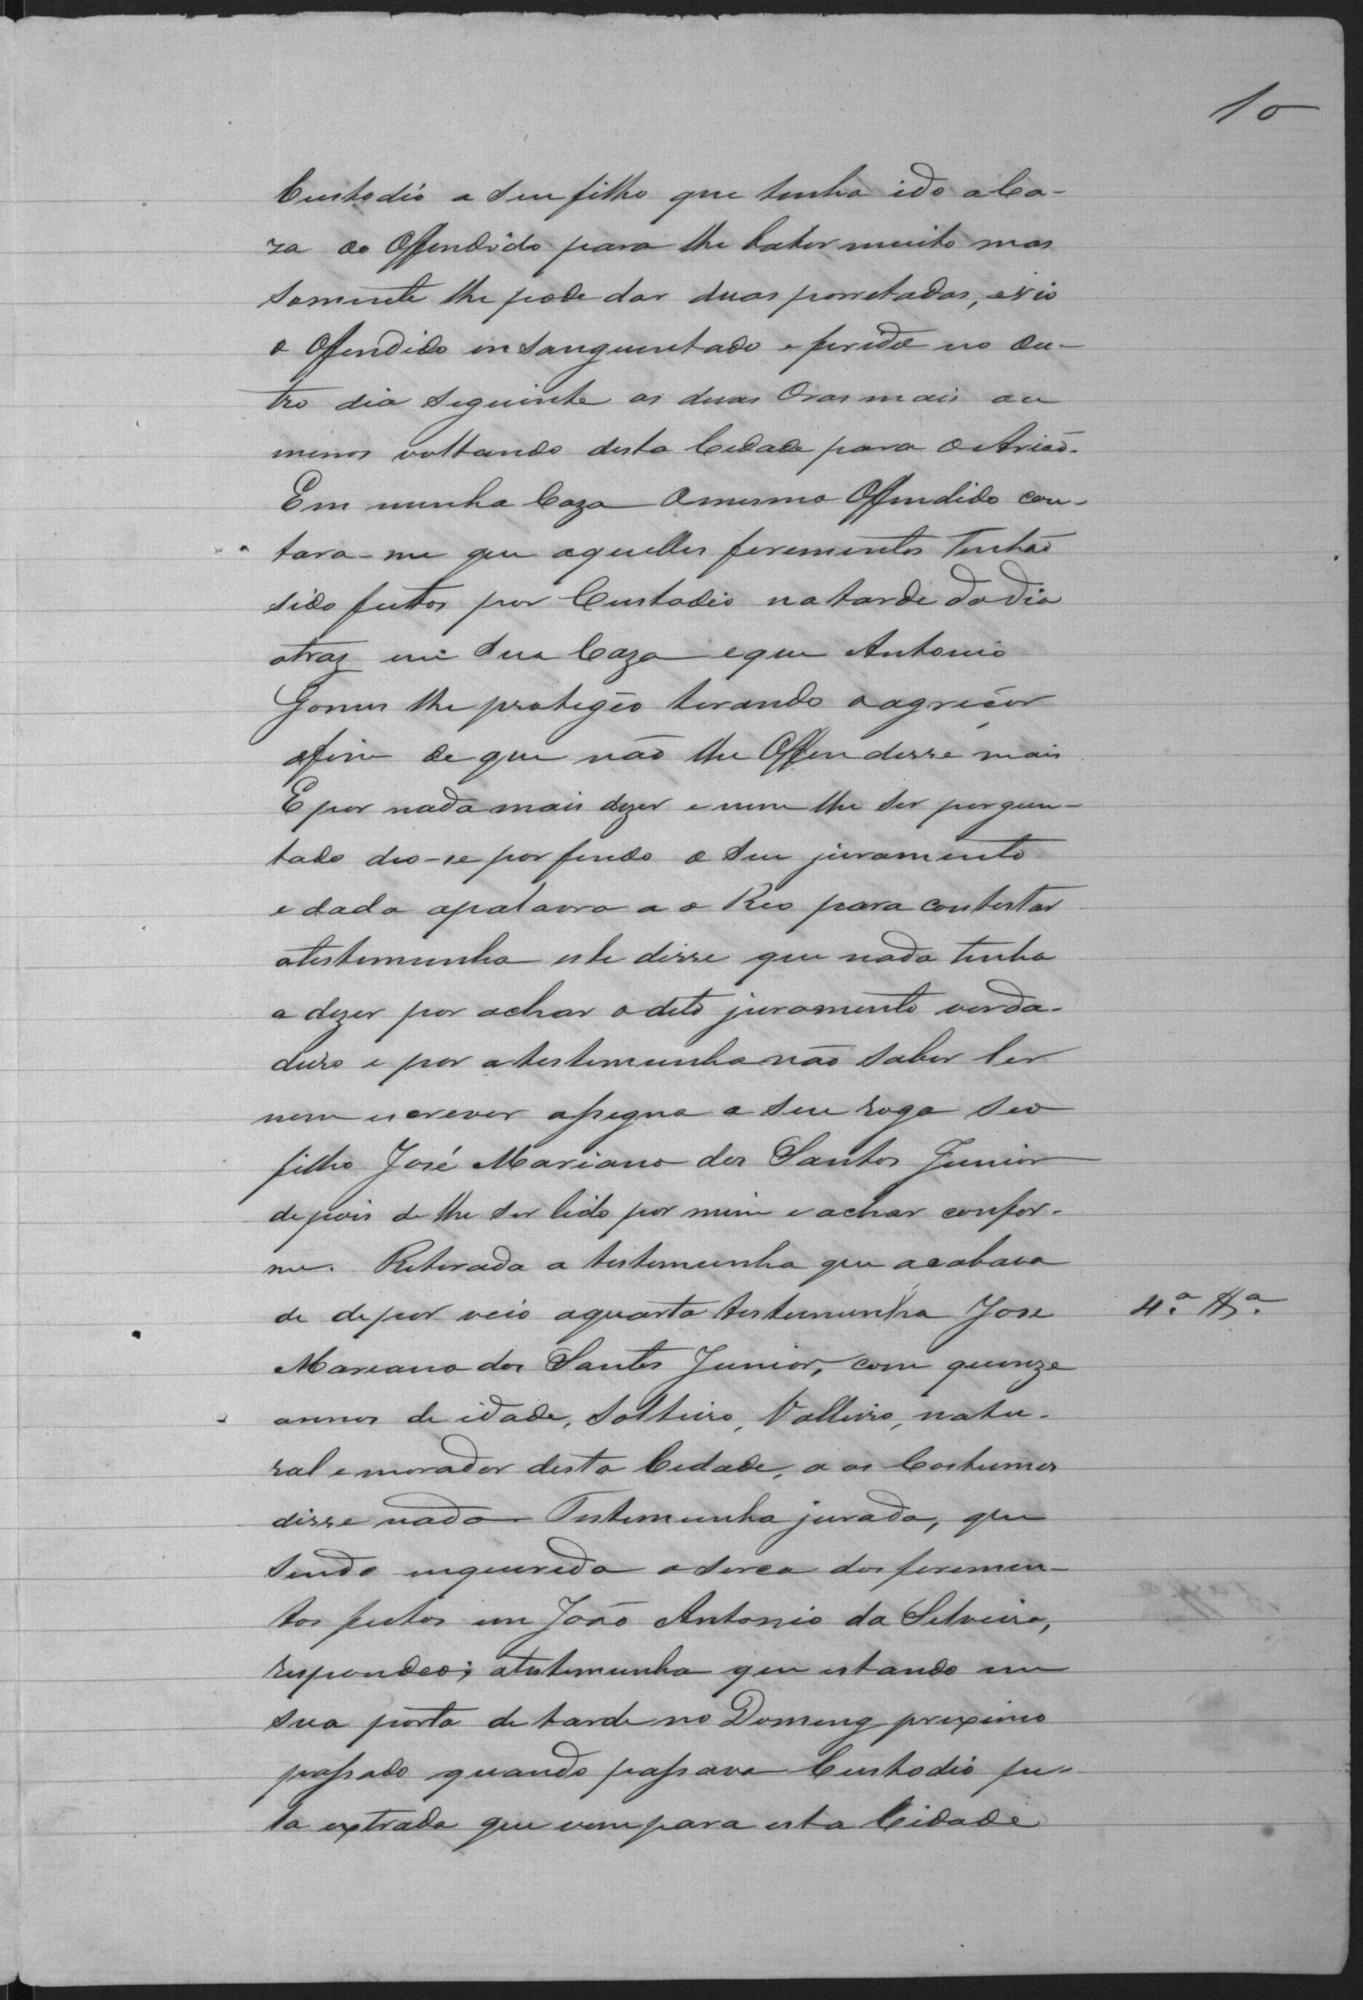 10
Custodio a seu filho que tinha ido a Ca-
za do Offendido para lhe bater muito mas
somente lhe pode dar duas porretadas, e vio
o Offendido ensanguentado e ferido no ou-
tro dia seguinte as duas Oras mais ou
menos voltando desta Cidade para o Arião.
Em minha Caza o mesmo Offendido con-
tara-me que aquelles ferimentos Tinhão
sido feitos por Custodio na tarde do dia
atraz em sua Caza e que Antonio
Gomes lhe protegêo tirando o agreçor
afim de que não lhe Offendesse mais
E por nada mais dizer e nem lhe ser pergun-
tado deo-se por findo o seu juramento
e dada a palavra a o Reo para contestar
a testemunha este disse que nada tinha
a dizer por achar o dito juramento verda-
deiro e por a testemunha não saber ler
nem escrever assigna a seu rogo seo
filho José Mariano dos Santos Junior
depois de lhe ser lido por mim e achar confor-
me. Retirada a testemunha que acabava
de depor veio a quarta testemunha Jose
4.ª Tª.
Mariano dos Santos Junior, com quinze
annos de idade, solteiro, natu-
ral e morador desta Cidade, a os Costumes
disse nada Testemunha jurada, que
sendo enquerida aserca dos ferimen-
tos feitos em João Antonio da Silveira,
respondeo; a testemunha que estando em
sua porta de tarde no Doming proximo
passado quando passava Custodio pe-
la extrada que vem para esta Cidade